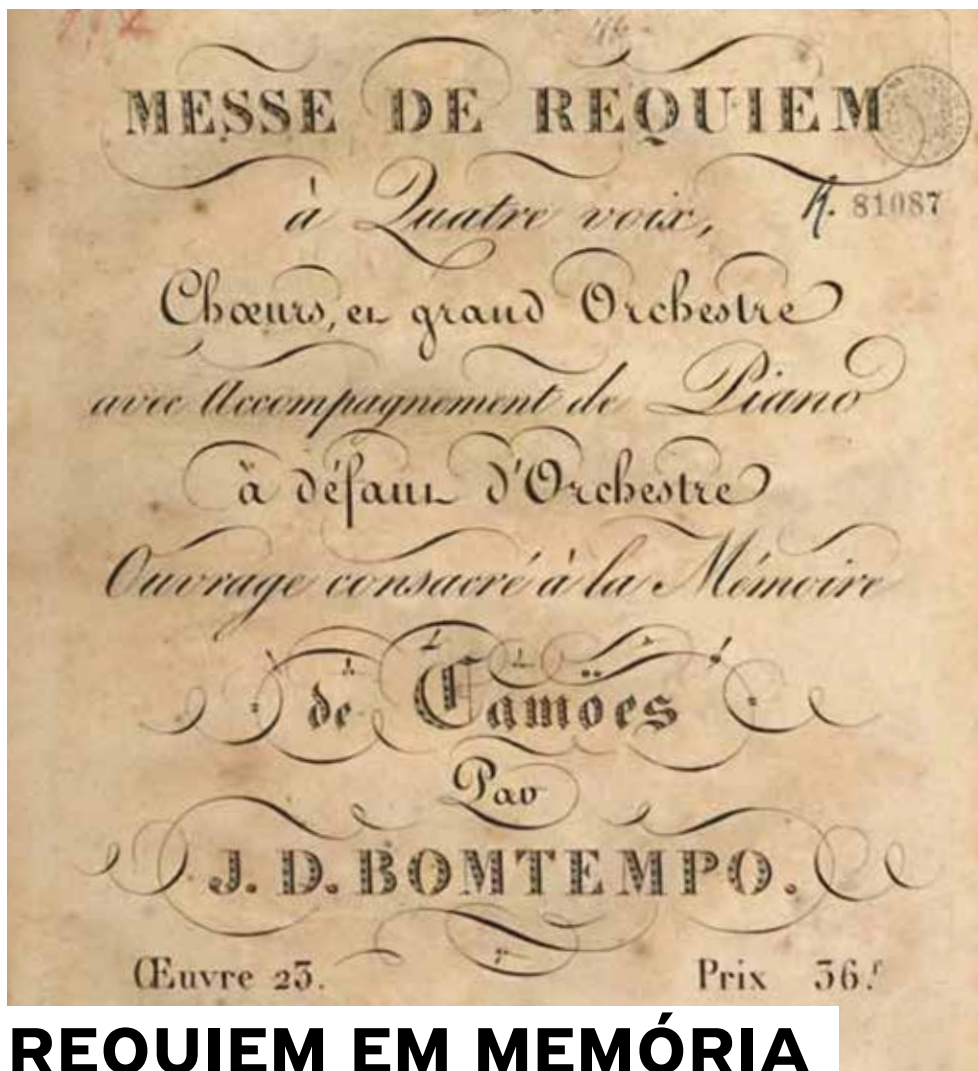 MESSE DE REQUIEM
à Quatre voix,
81087
Chœurs, et grand Orchestre
avec Accompagnement de Piano
à défaut d'Orchestre
Ouvrage consacré à la Mémoire
de Camöes
Par
J. D. BOMTEMPO.
Œuvre 23. Prix 36.f
REQUIEM EM MEMÓRIA